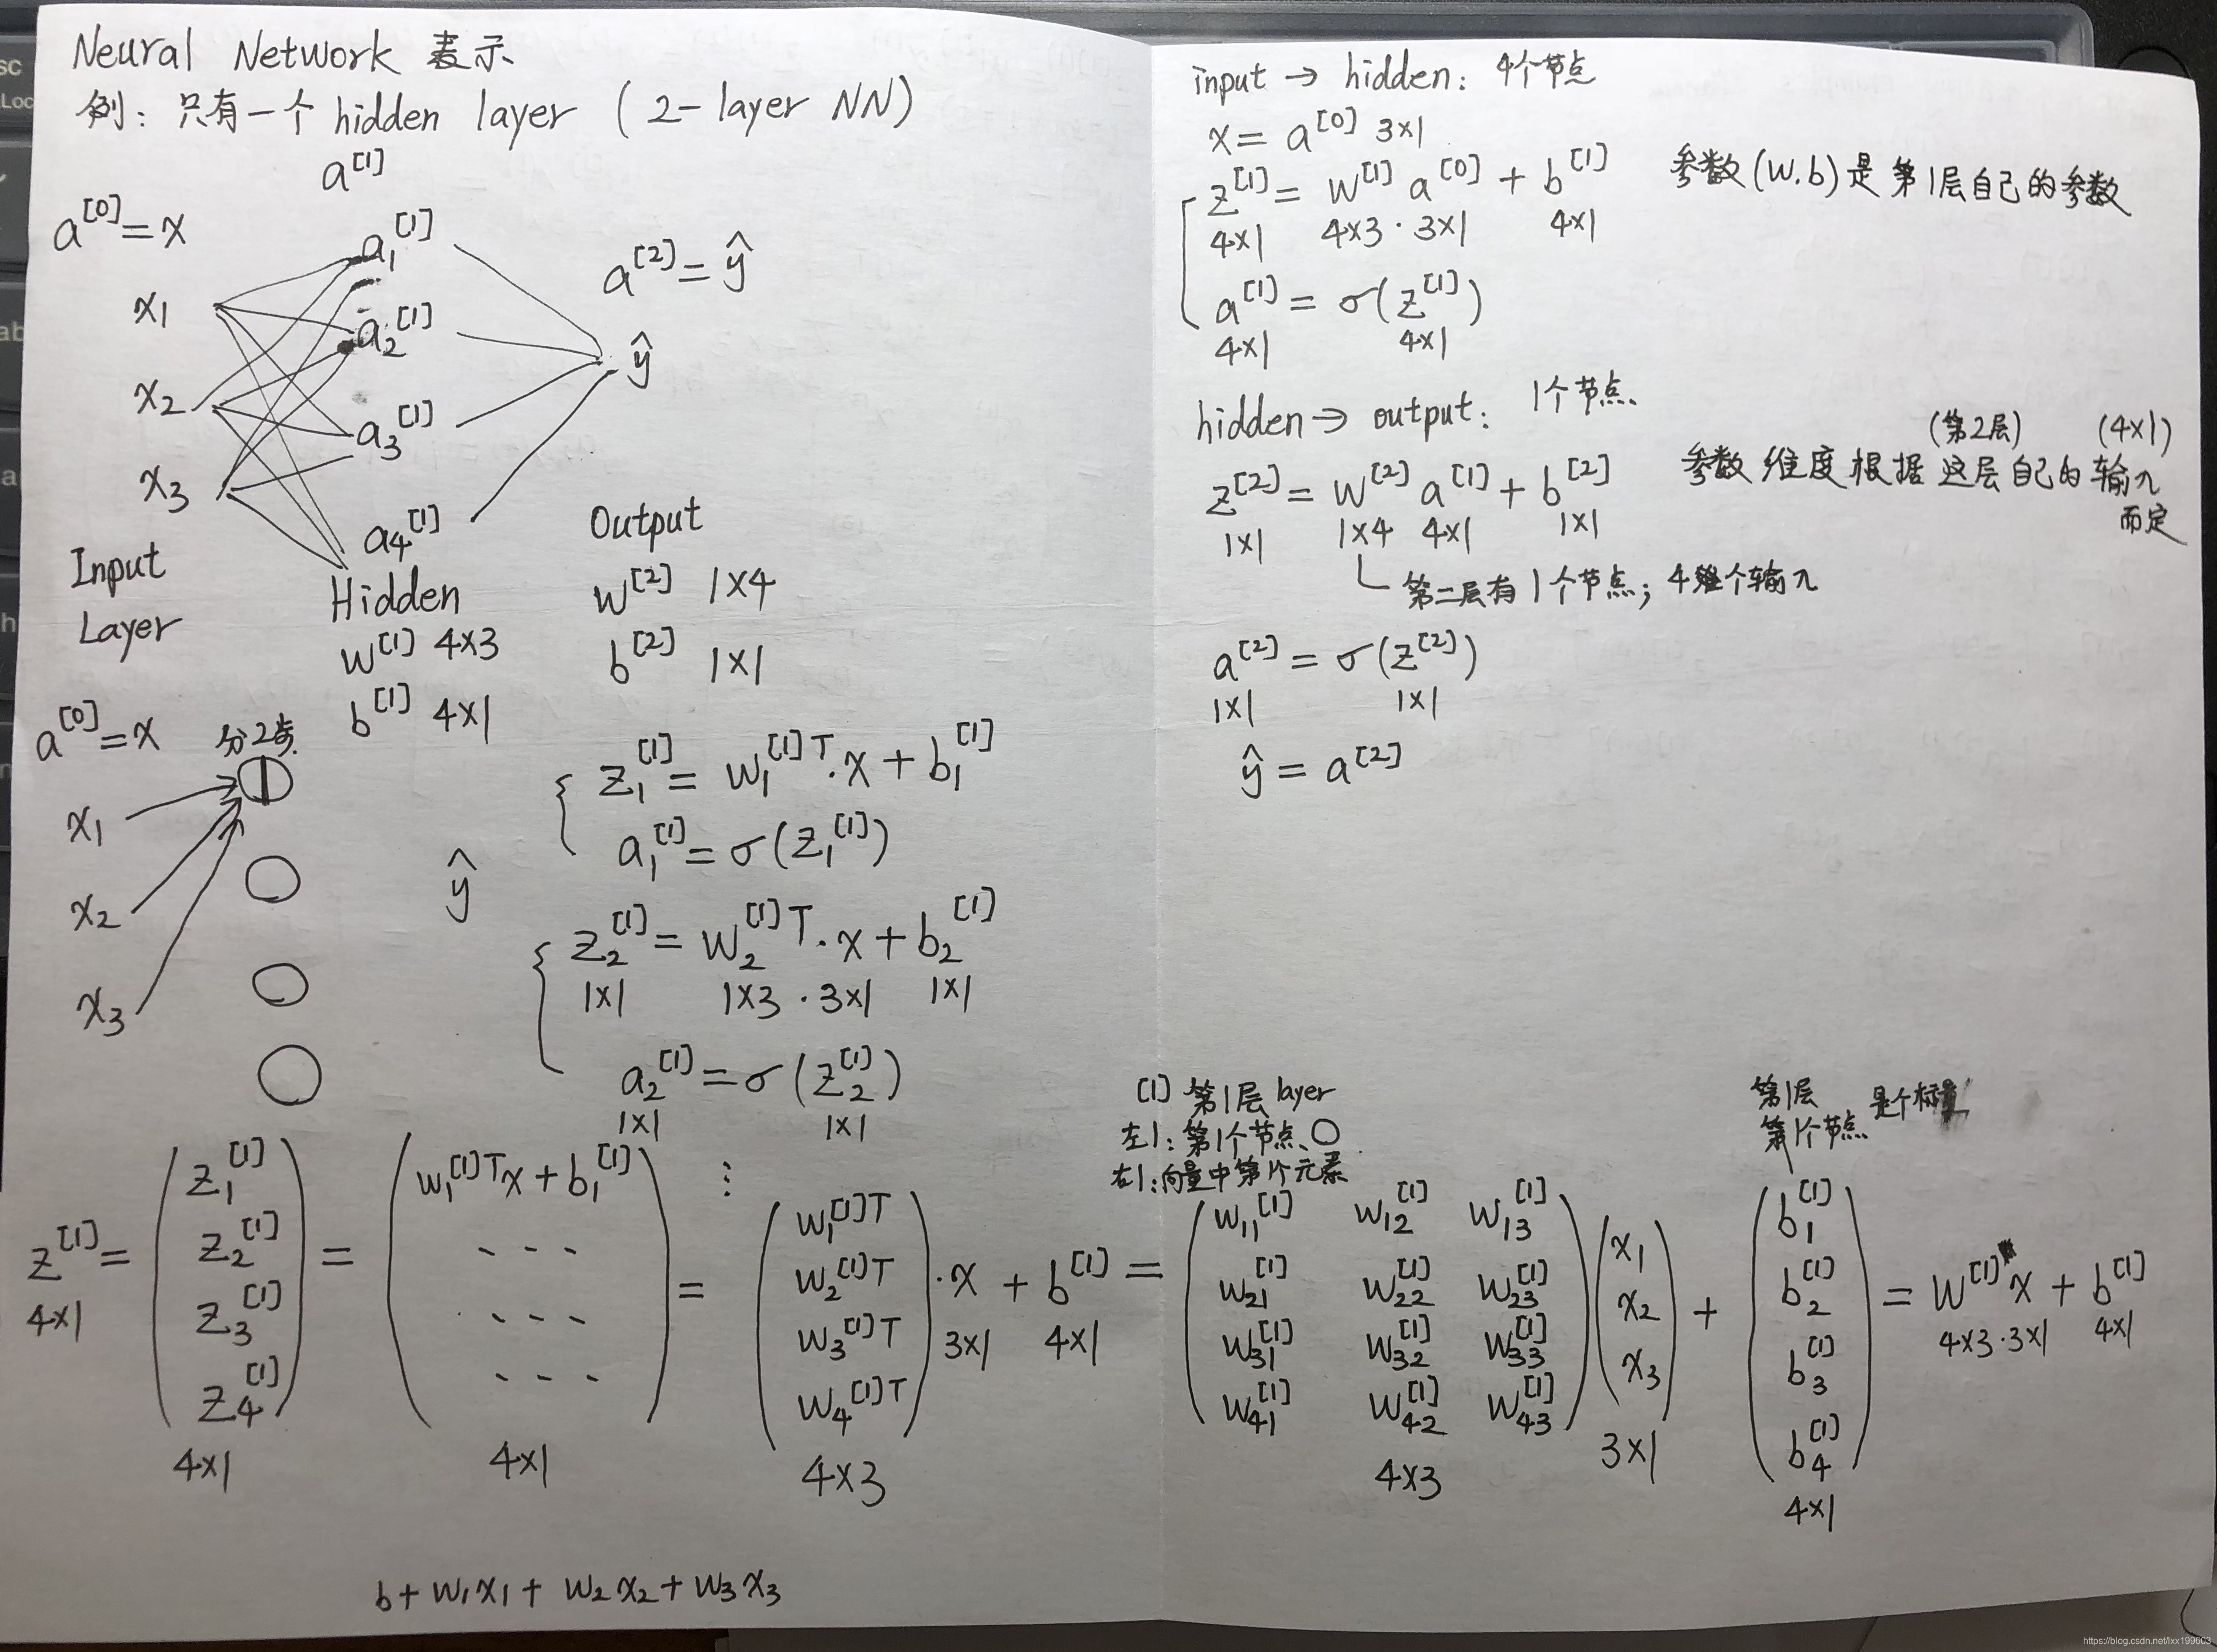 Neural Network 表示
例: 只有一个 hidden layer ( 2-layer NN )
a^[1]
a^[0] = x
a_1^[1]
a^[2] = ŷ
x_1
a_2^[1]
ŷ
x_2
a_3^[1]
x_3
a_4^[1]
Input
Layer
Hidden
w^[1] 4×3
b^[1] 4×1
Output
w^[2] 1×4
b^[2] 1×1
a^[0] = x
分2步
x_1
x_2
x_3
ŷ
z_1^[1] = w_1^[1]T · x + b_1^[1]
a_1^[1] = σ(z_1^[1])
z_2^[1] = w_2^[1]T · x + b_2^[1]
1×1 1×3 · 3×1 1×1
a_2^[1] = σ(z_2^[1])
1×1 1×1
⋮
input → hidden: 4个节点
x = a^[0] 3×1
z^[1] = w^[1] a^[0] + b^[1] 参数(w.b)是第1层自己的参数
4×1 4×3 · 3×1 4×1
a^[1] = σ(z^[1])
4×1 4×1
hidden → output: 1个节点
(第2层) (4×1)
z^[2] = w^[2] a^[1] + b^[2] 参数维度根据这层自己的输入
而定
1×1 1×4 4×1 1×1
第二层有1个节点; 4个输入
a^[2] = σ(z^[2])
1×1 1×1
ŷ = a^[2]
[1] 第1层 layer
左1: 第1个节点 ○
右1: 向量中第1个元素
第1层
第1个节点 是个标量
z^[1] = ( z_1^[1] z_2^[1] z_3^[1] z_4^[1] ) = ( w_1^[1]T x + b_1^[1] --- --- --- ) = ( w_1^[1]T w_2^[1]T w_3^[1]T w_4^[1]T ) · x + b^[1] = ( w_11^[1] w_12^[1] w_13^[1]
w_21^[1] w_22^[1] w_23^[1]
w_31^[1] w_32^[1] w_33^[1]
w_41^[1] w_42^[1] w_43^[1] ) ( x_1 x_2 x_3 ) + ( b_1^[1] b_2^[1] b_3^[1] b_4^[1] ) = w^[1] x + b^[1]
4×1 3×1 4×1 4×3 · 3×1 4×1
4×1 4×1 4×3 4×3 3×1 4×1
b + w_1x_1 + w_2x_2 + w_3x_3
https://blog.csdn.net/lxx199603